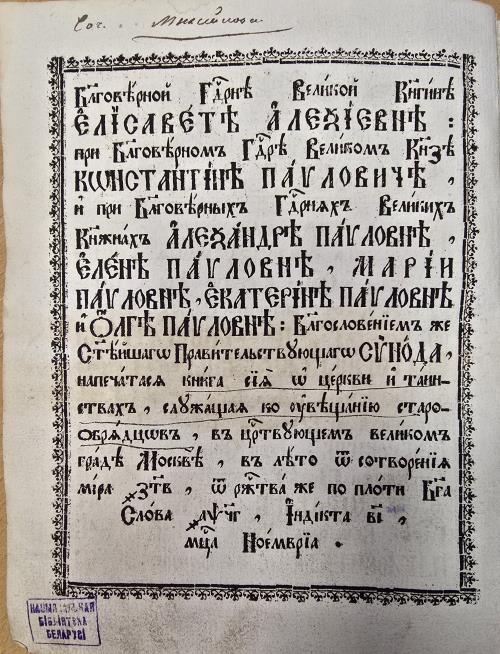 Соч.
Бл҃говѣрной Гдⷭ҇рнѣ Великой Кнѧгинѣ
Є҆лїсаве́тѣ А҆леѯі́евнѣ :
при Бл҃говѣрномъ Гдⷭ҇рѣ Великомъ Кнѧзѣ
Кѡнстантінѣ Па́ѵловичѣ ,
и҆ при Бл҃говѣрныхъ Гдⷭ҇рнѧхъ Великихъ
Кнѧжнахъ А҆леѯа́ндрѣ Па́ѵловнѣ ,
Є҆ле́нѣ Па́ѵловнѣ , Марі́и
Па́ѵловнѣ , Є҆катері́нѣ Па́ѵловнѣ
и҆ Ѻ҆́лгѣ Па́ѵловнѣ : Бл҃гословенїемъ же
Ст҃ѣйшагѡ Правительствующагѡ Сѵно́да ,
напечатасѧ книга сїѧ̀ ѡ҆ церкви и҆ таин-
ствахъ , служащаѧ ко ᲂу҆вѣщанїю старо-
ѻбрѧдцѡвъ , въ црⷭ҇твующемъ великомъ
градѣ Москвѣ , въ лѣто ѿ сотворенїѧ
міра ҂зт҃в , ѿ ржⷭ҇тва же по плоти Бг҃а
Слова ҂аѱч҃г , І҆ндікта в҃і ,
мцⷭ҇а Ноемврїа .
НАЦЫЯНАЛЬНАЯ
БІБЛІЯТЭКА
БЕЛАРУСІ